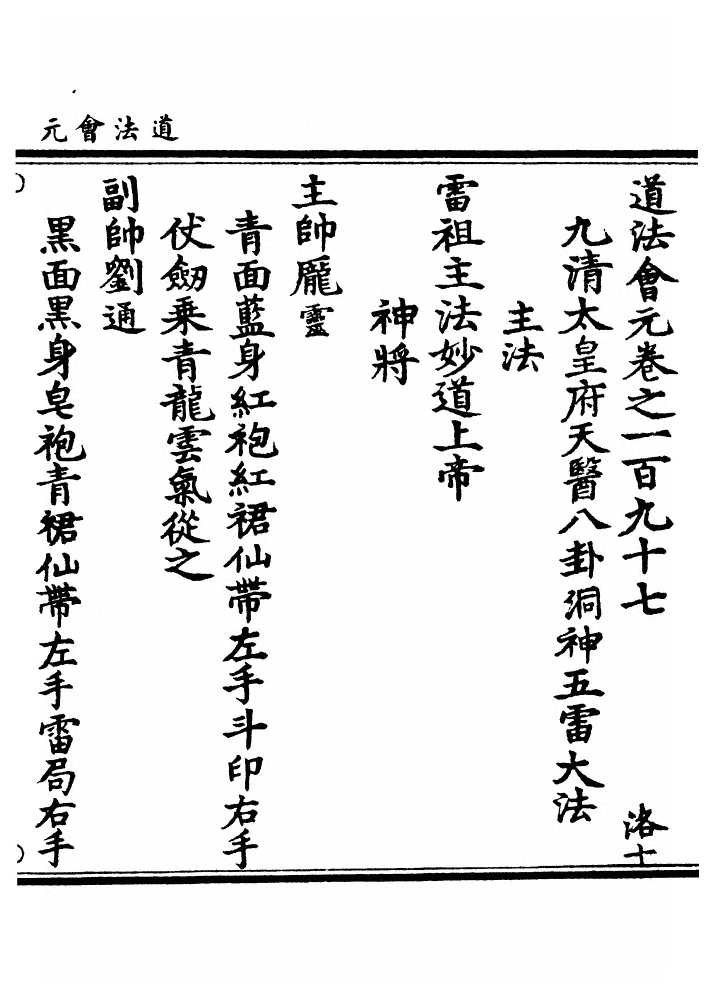 道法會元
道法會元卷之一百九十七
洛十
九清太皇府天醫八卦洞神五雷大法
主法
雷祖主法妙道上帝
神將
主帥龐靈
青面藍身紅袍紅裙仙帶左手斗印右手
仗劒乗青龍雲氣從之
副帥劉通
黑面黑身皂袍青裙仙帶左手雷局右手